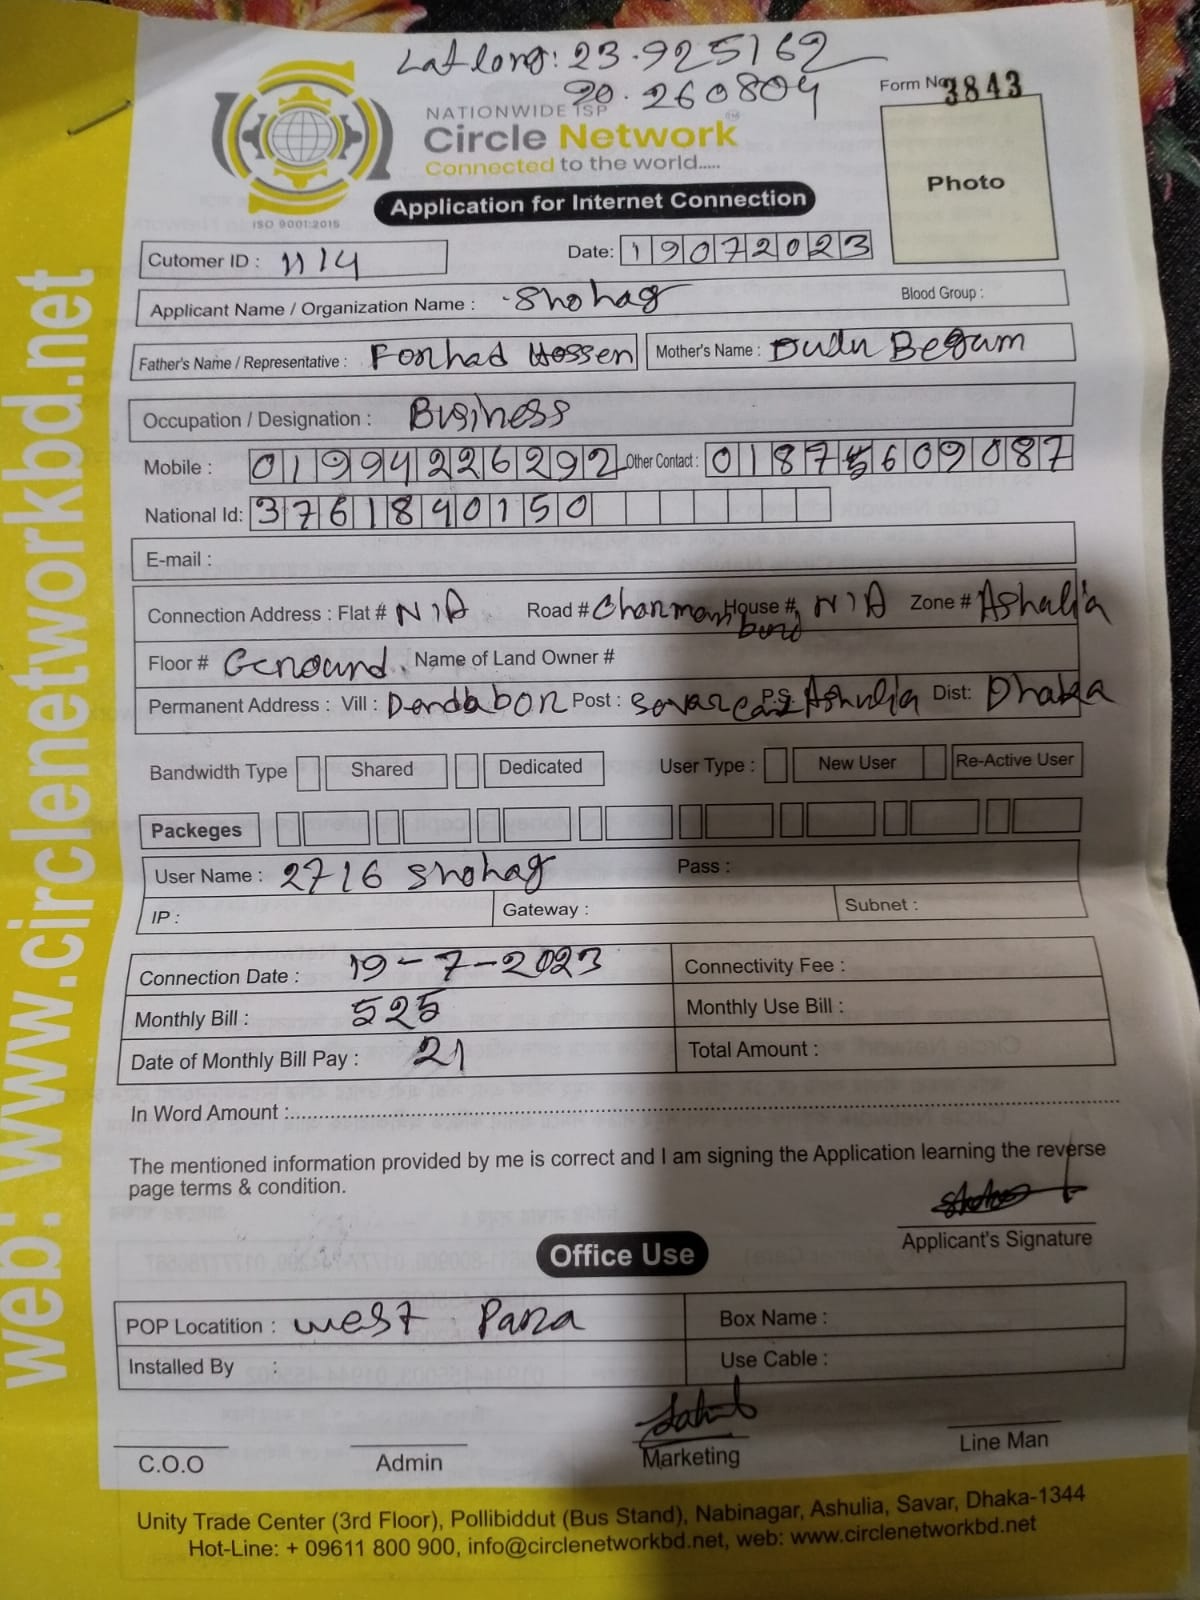 Lat long: 23.925162
90.260804
Form No 3843
NATIONWIDE ISP
Circle Network
Connected to the world.....
ISO 9001:2015
Application for Internet Connection
Photo
Cutomer ID : 1114
Date: 19072023
Applicant Name / Organization Name : Shohag Blood Group :
Father's Name / Representative : Forhad Hossen Mother's Name : Dudu Begam
Occupation / Designation : Business
Mobile : 01994226292 Other Contact : 01875609087
National Id: 3761840150
E-mail :
Connection Address : Flat # N/A Road # House # N/A Zone # Ashalia
Floor # Ground. Name of Land Owner #
Permanent Address : Vill : Dendabor Post : Savar P.S Ashulia Dist: Dhaka
Bandwidth Type Shared Dedicated User Type : New User Re-Active User
Packeges
User Name : 2716 Shohag Pass :
IP : Gateway : Subnet :
Connection Date : 19-7-2023 Connectivity Fee :
Monthly Bill : 525 Monthly Use Bill :
Date of Monthly Bill Pay : 21 Total Amount :
In Word Amount :
The mentioned information provided by me is correct and I am signing the Application learning the reverse
page terms & condition.
Applicant's Signature
Office Use
POP Locatition : west Para Box Name :
Installed By : Use Cable :
C.O.O Admin Marketing Line Man
Unity Trade Center (3rd Floor), Pollibiddut (Bus Stand), Nabinagar, Ashulia, Savar, Dhaka-1344
Hot-Line: + 09611 800 900, info@circlenetworkbd.net, web: www.circlenetworkbd.net
web: www.circlenetworkbd.net